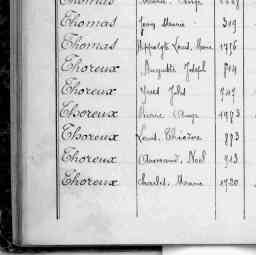 Thomas Marie Ange
Thomas Jean Marie 319
Thomas Hippolyte Louis Marie 1776
Thoreux Auguste Joseph
Thoreux Yves Jules 747
Thoreux Pierre Ange 1973
Thoreux Louis Théodore 873
Thoreux Armand Noël 913
Thoreux Charles Marie 1720